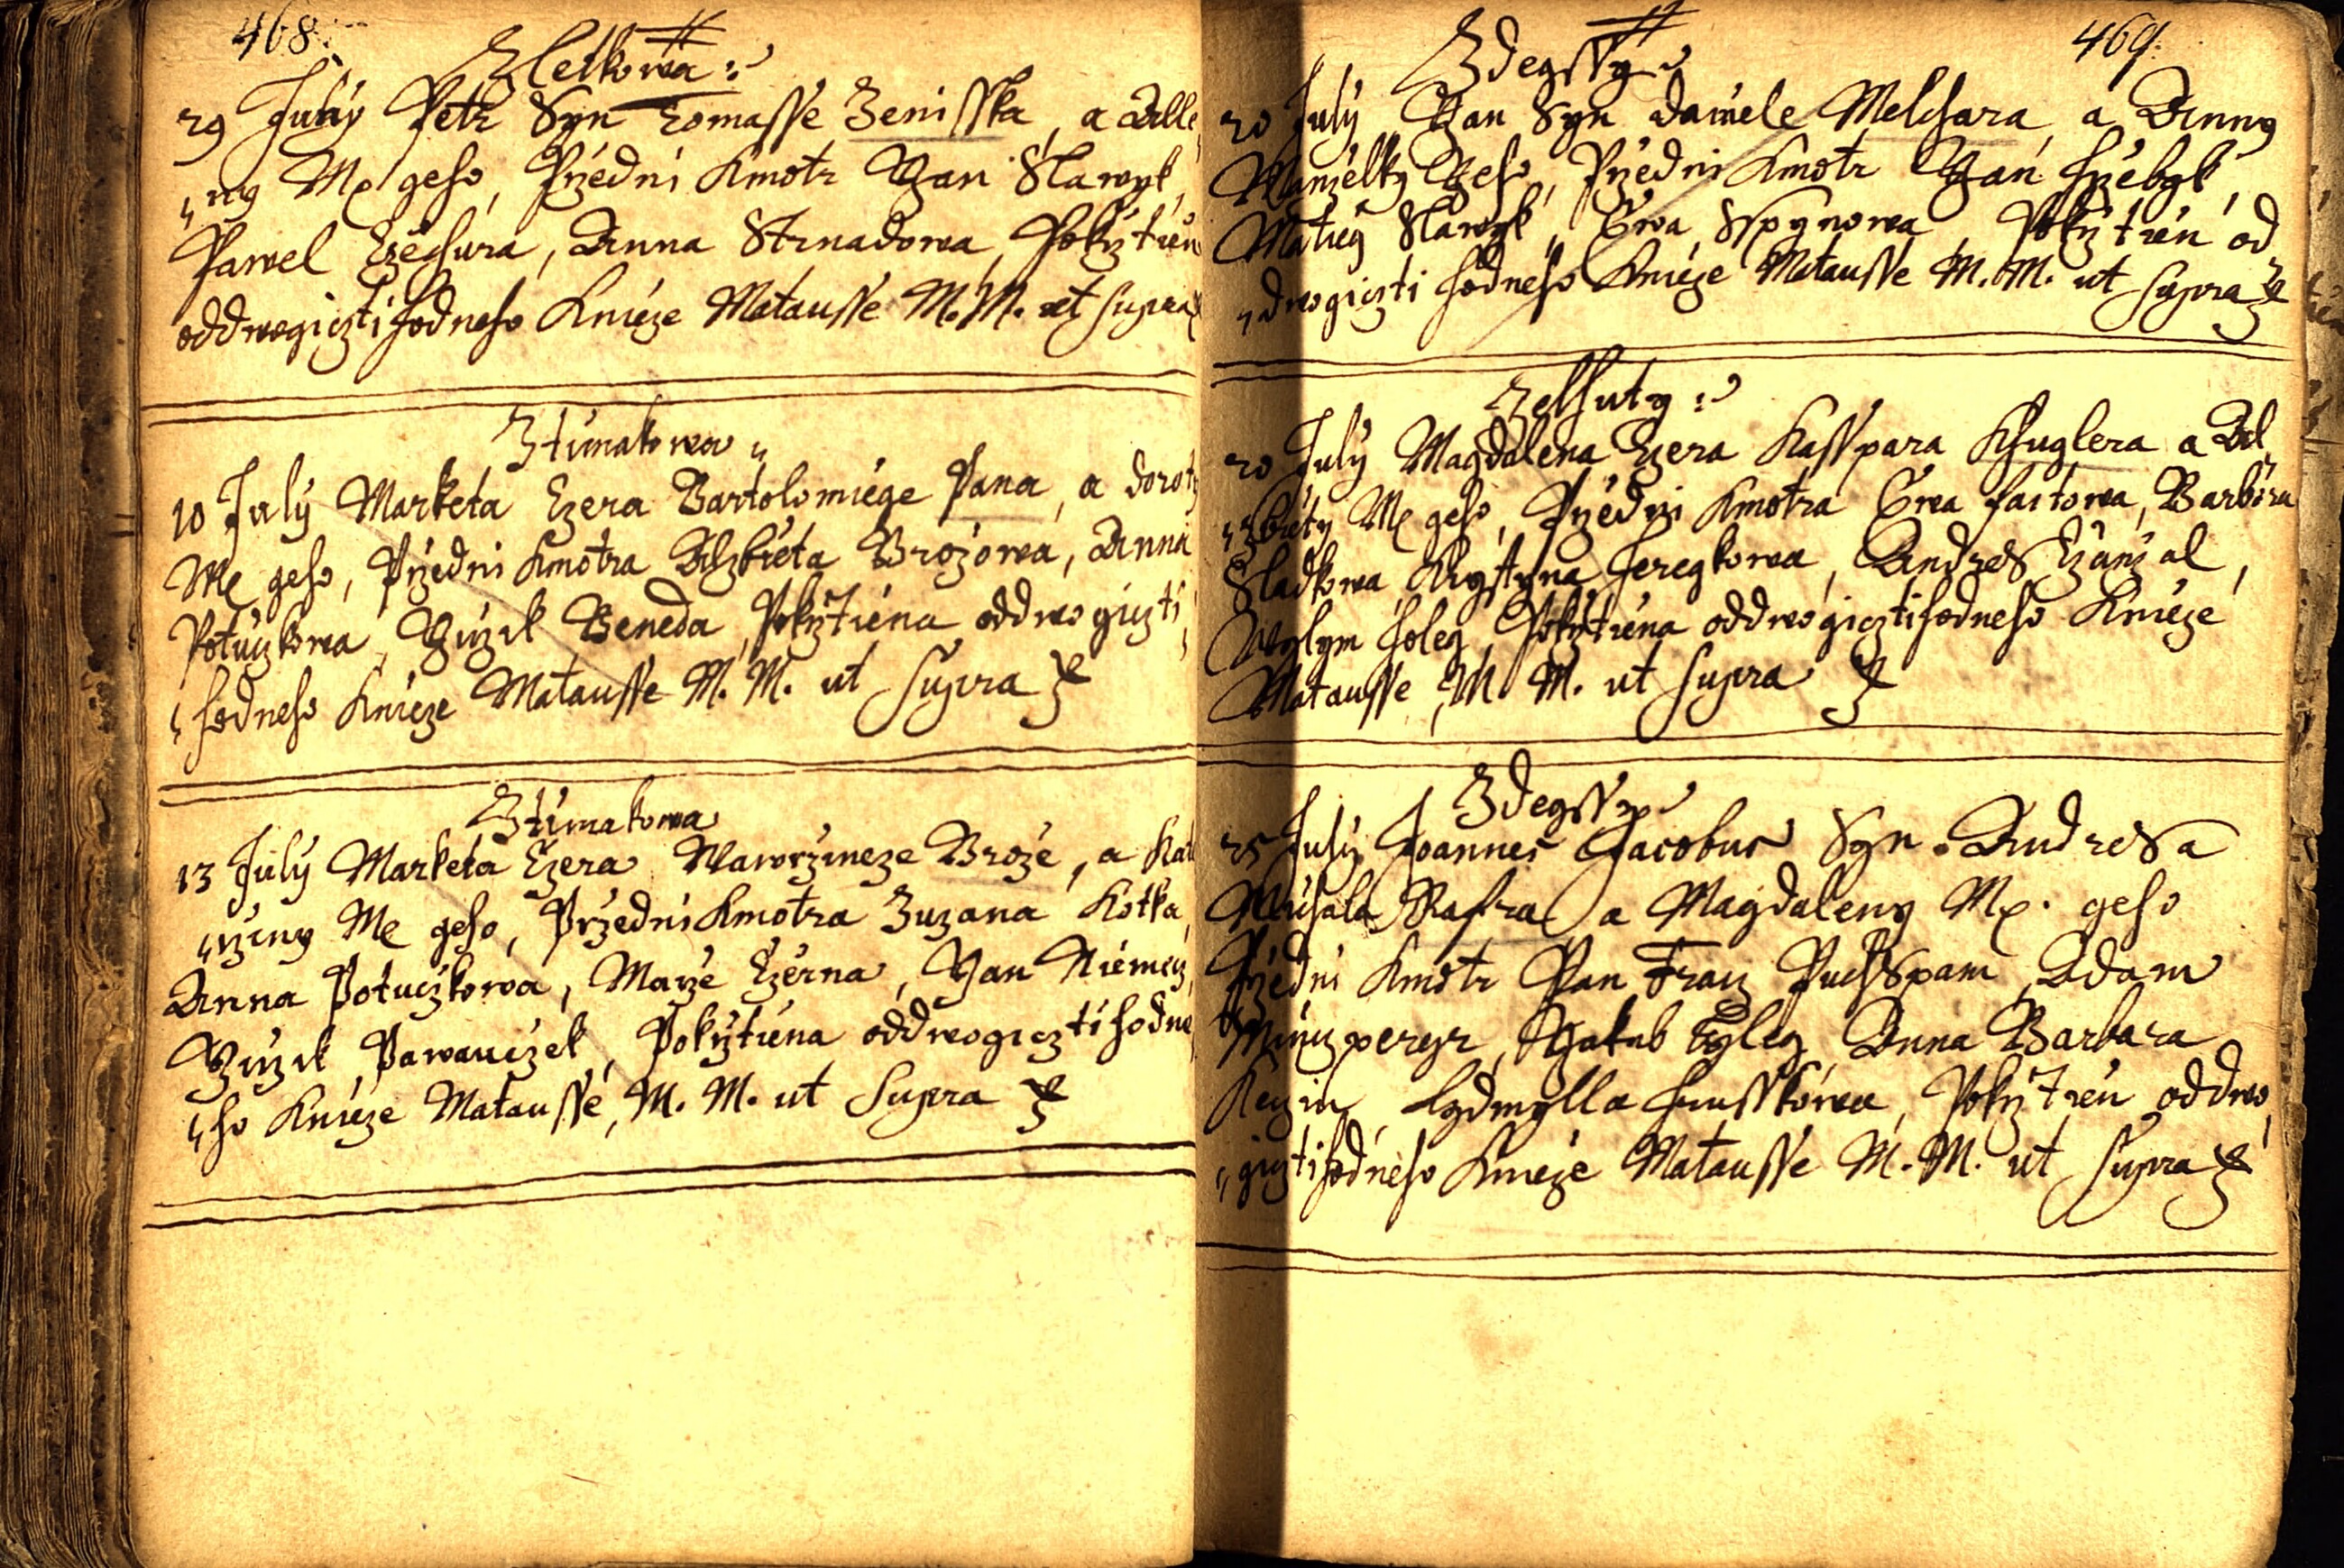 468.
Zletkowa
29 July Petr Syn Tomasse Zenisska, a Alle
ny Mp geho, Przedni Kmotr Yan Slawyk,
Pawel Czechura, Anna Strnadowa, Pokrztien
oddwogicztihodneho Knieze Matausse M. M. ut supra
Ztimakowa
10 July Marketa Czera Bartolomiege Pana, a Dorot
Mp geho, Przedni Kmotra Alzbieta Brozowa, Anna
Potuczkowa, Beneda, Pokrztiena oddwogiczti
hodneho Knieze Matausse M. M. ut supra
Ztimakowa
13 July Marketa Czera Wawrzineze Broze, a Kat
rziny Mp geho, Przedni Kmotra Zuzana Kotka,
Anna Potuczkowa, Marze Czerna, Yan Niemecz,
Pawauczek, Pokrztiena oddwogicztihodne
ho Knieze Matausse, M. M. ut supra
469.
Zdegssy
20 July Yan Syn Daniele Melchara, a Anny
Manzelky Geho, Przedni Kmotr Yan Hrzebyk,
Matieg Slawyk, Ewa Sspynowa, Pokrztien od
dwogiczti hodneho Knieze Matausse M. M. ut supra
Zelhuty
20 July Magdalena Czera Kasspara Khuglera a Al
zbiety Mp geho, Przedni Kmotra Ewa Faitowa, Barbora
Sladkowa, Krystyna Feregkowa, Andres
Wylym Holeg, Pokrztiena oddwogicztihodneho Knieze
Matausse, M. M. ut supra
Zdegssy
25 July Joannes Jacobus Syn Andresa
Michala Rafra a Magdaleny Mp. geho
Przedni Kmotr Pan Franz Puchspam, Adam
Yakub Anna Barbara
Lydmylla Hrusskowa, Pokrztien oddwo
gicztihodneho Knieze Matausse M. M. ut supra